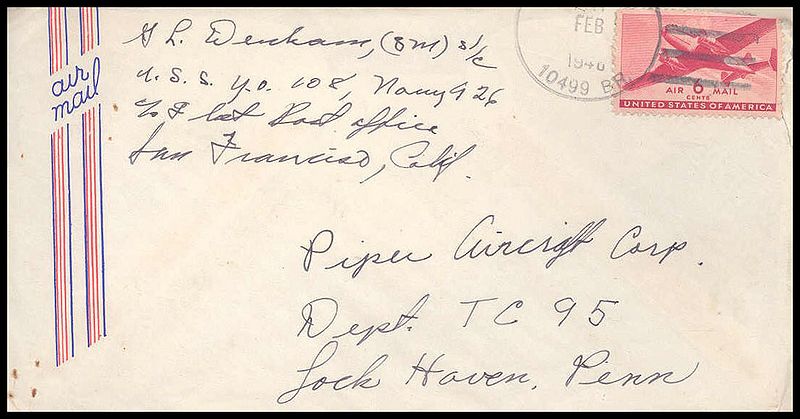 G L. Denham, (BM) S1/c
U. S. S. Y.O. 108, Navy 926
c/o Fleet Post office
San Francisco, Calif.
air
mail
FEB
1946
10499 BR.
6
AIR MAIL
CENTS
UNITED STATES OF AMERICA
Piper Aircraft Corp.
Dept. TC 95
Lock Haven, Penn